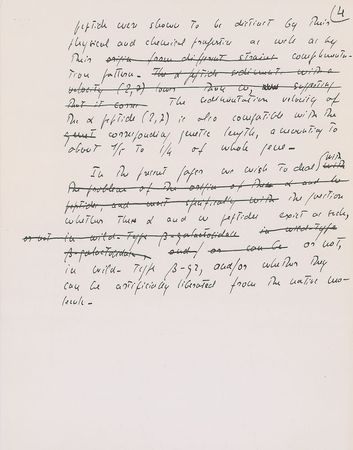 (4
peptide were shown to be distinct by their
physical and chemical properties as well as by
their origin from different strains complementa-
tion pattern. The α peptide sediments with a
velocity (2,3) than ω, supporting
that it comes The sedimentation velocity of
the α peptide (2,2) is also compatible with the
corresponding genetic length, amounting to
about 1/5 to 1/4 of whole gene-
In the present paper we wish to deal with
the problem of the origin of these α and ω
peptides, and most specifically with the question
whether these α and ω peptides exist as such,
or not in wild-type β-galactosidase in wild-type
β-galactosidase, and/or can be or not,
in wild-type β-gz, and/or whether they
can be artificially liberated from the native mo-
lecule-